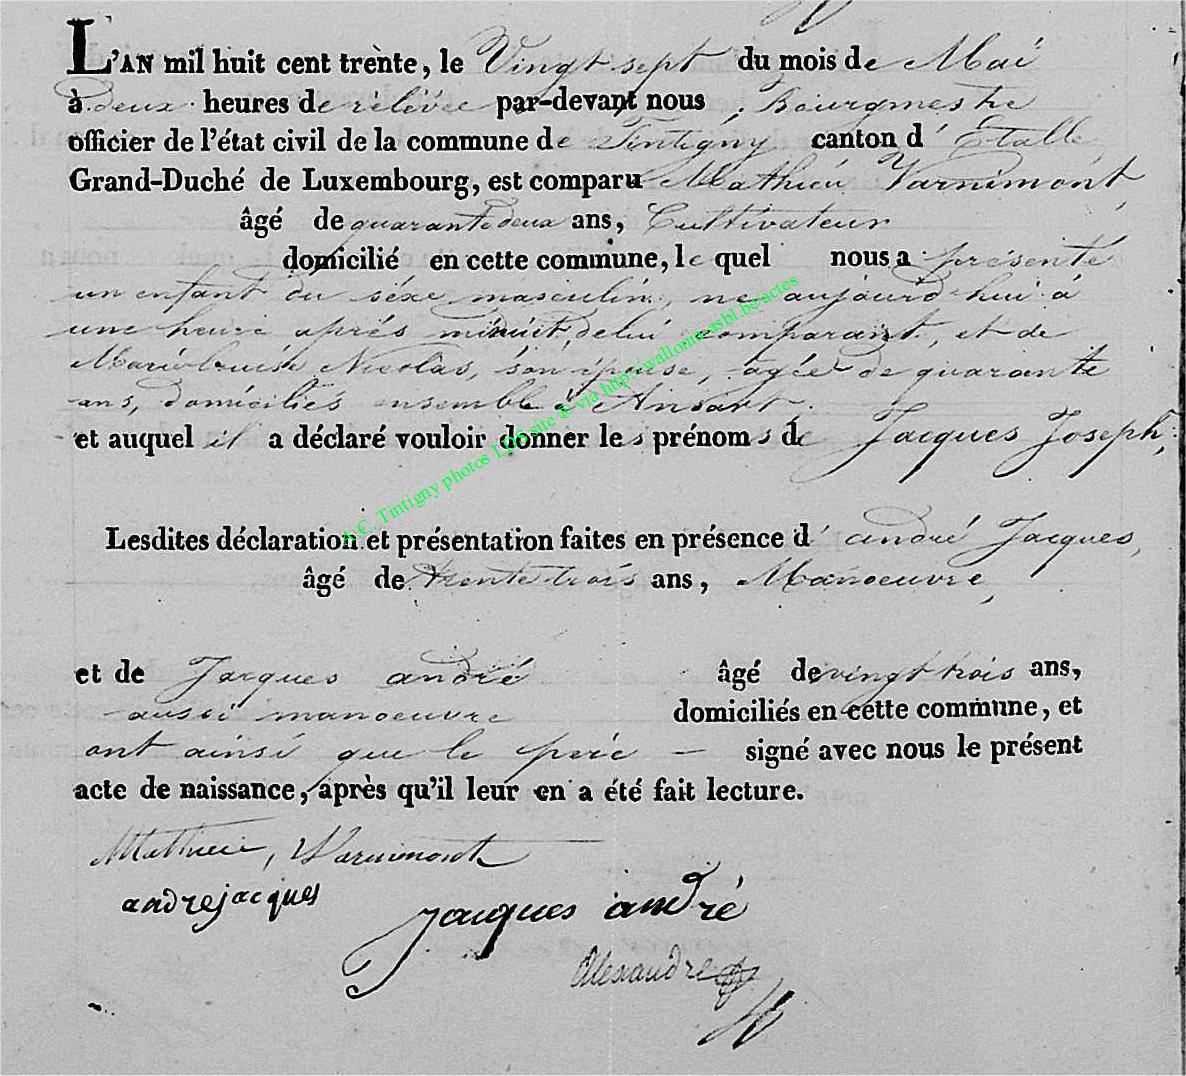 L'AN mil huit cent trente, le Vingt sept du mois de Mai
à deux heures de rélévée par-devant nous, Bourgmestre
officier de l'état civil de la commune de Tintigny canton d'Etalle,
Grand-Duché de Luxembourg, est comparu Mathieu Varnimont,
âgé de quarante deux ans, Cultivateur
domicilié en cette commune, le quel nous a présenté
un enfant du séxe masculin, né aujourd'hui à
une heure aprés minuit, de lui comparant, et de
Marie Louise Nicolas, son épouse, agée de quarante
ans, domiciliés ensemble à Ansart.
et auquel il a déclaré vouloir donner les prénoms de Jacques Joseph,
Lesdites déclaration et présentation faites en présence d'andré Jacques,
âgé de trente trois ans, Manoeuvre,
et de Jacques andré âgé de vingt trois ans,
aussi manoeuvre domiciliés en cette commune, et
ont ainsi que le pére — signé avec nous le présent
acte de naissance, après qu'il leur en a été fait lecture.
Mathieu, Varnimont
andrejacques
jacques andré
Alexandre
A.C. Tintigny photos LDS site & via http://wallonia-asbl.be/actes